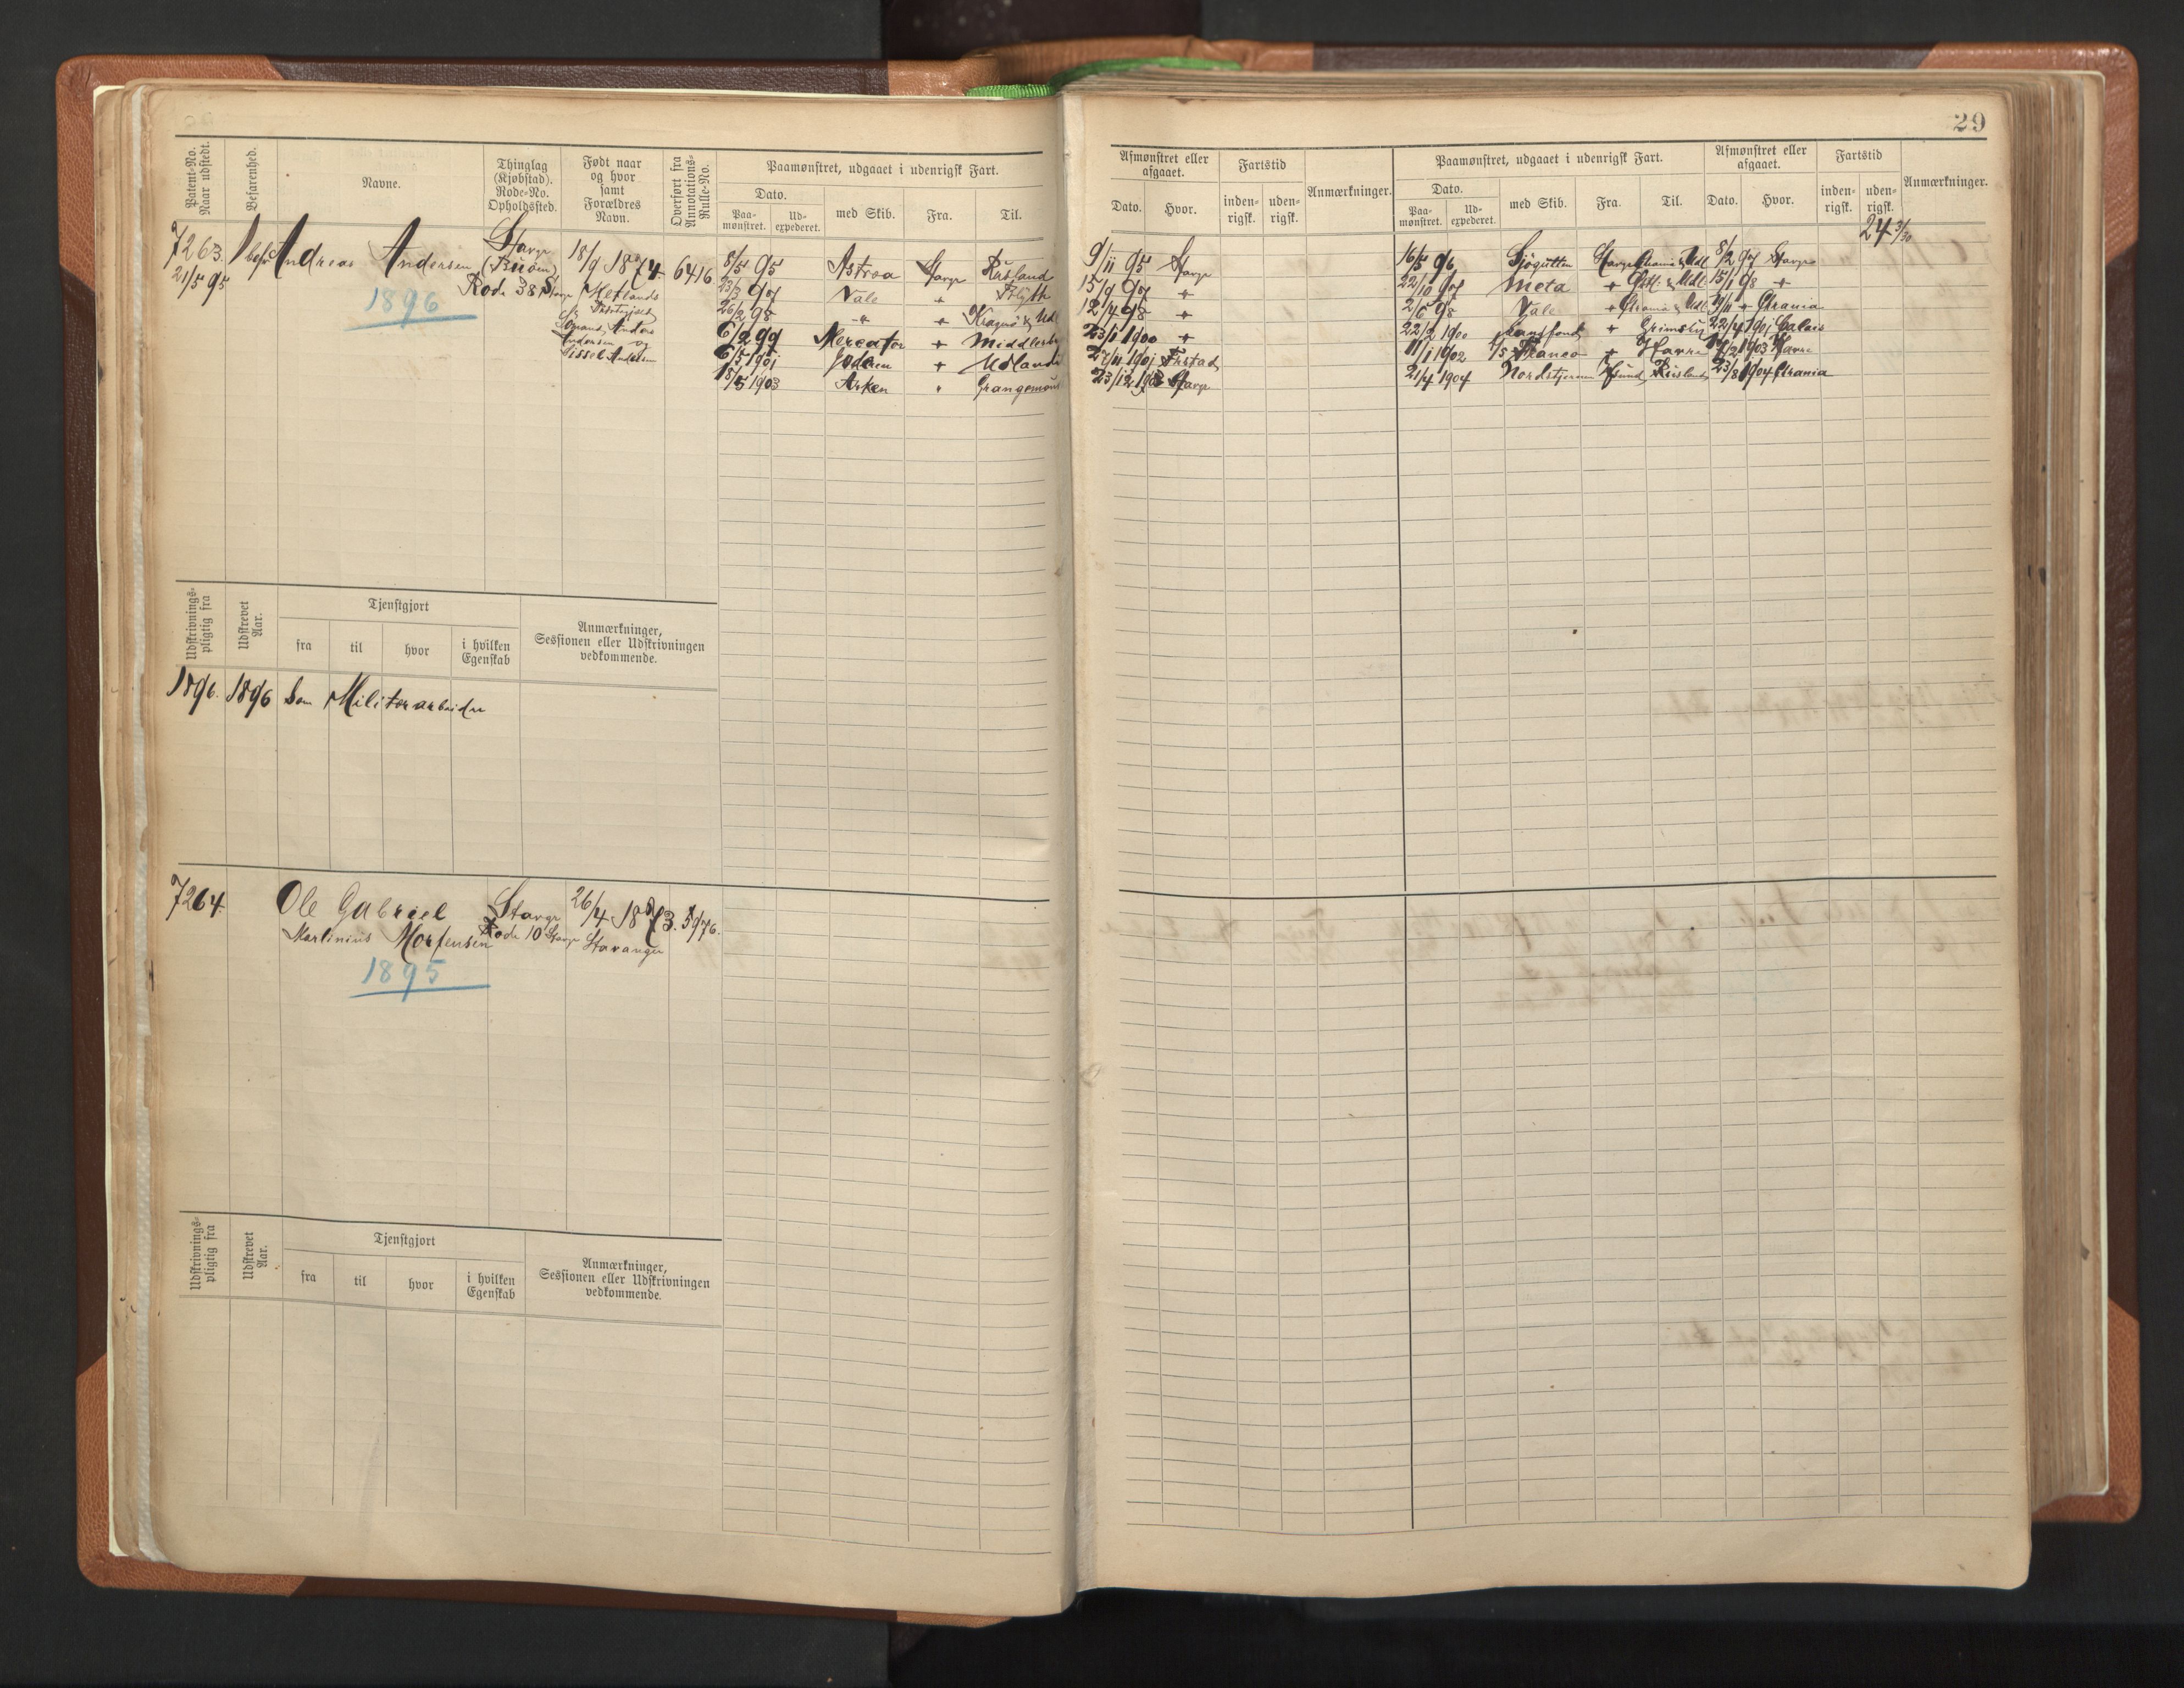 29
Patent-No. Naar udstedt.
Befarenhed.
Navne.
Thinglag (Kjøbstad). Rode-No. Opholdssted.
Født naar og hvor samt Forældres Navn.
Overført fra Annotations-Rulle-No.
Paamønstret, udgaaet i udenrigsk Fart.
Dato.
Paa-mønstret.
Ud-expederet.
med Skib.
Fra.
Til.
7263.
21/5 95
Andreas Andersen
1896
Stavgr
Rode 38
18/9 1874.
Anders
Andersen og
6416
8/5 95 Astrea Stavgr Rusland
23/3 97 Vale " Blyth
26/2 98 -"- "
6/2 99 Mercator "
6/5 1901 Jæderen " Udland
18/5 1903 Arken "
Udskrivnings-pligtig fra
Udskrevet Aar.
Tjenstgjort
fra
til
hvor
i hvilken Egenskab
Anmærkninger, Sessionen eller Udskrivningen vedkommende.
1896. 1896 Som Militærarbeider
7264.
Ole Gabriel
Martinius Mortensen
1895
Stavgr
Rode 10 Stavgr
26/4 1873.
Stavanger
5976.
Udskrivnings-pligtig fra
Udskrevet Aar.
Tjenstgjort
fra
til
hvor
i hvilken Egenskab
Anmærkninger, Sessionen eller Udskrivningen vedkommende.
Afmønstret eller afgaaet.
Dato.
Hvor.
Fartstid
inden-rigsk.
uden-rigsk.
Anmærkninger.
Paamønstret, udgaaet i udenrigsk Fart.
Dato.
Paa-mønstret.
Ud-expederet.
med Skib.
Fra.
Til.
Afmønstret eller afgaaet.
Dato.
Hvor.
Fartstid
inden-rigsk.
uden-rigsk.
Anmærkninger.
24 3/30
9/11 95 Stavgr
16/5 96 Sjøgutten Stavgr 8/2 97 Stavgr
15/9 97 "
22/10 97 Meta " 15/1 98 "
12/4 98 "
2/6 98 Vale "
23/1 1900 "
22/2 1900 " Grimsby 22/4 1901 Calais
27/11 1901
11/1 1902 Franco " Havre 7/2 1903 Havre
23/12 1903 Stavgr
21/4 1904 Nordstjernen Rusland 23/8 1904